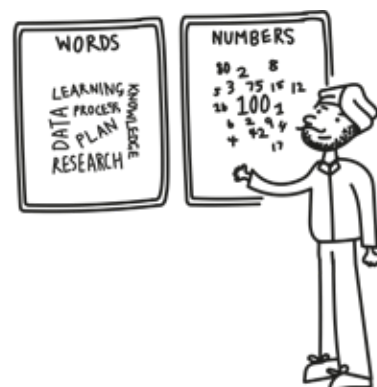 WORDS
LEARNING
PROCESS
DATA
PLAN
KNOWLEDGE
RESEARCH
NUMBERS
80 2 8
5 3 75 15 12
26 100 1
6 2 9 4
4 42
17